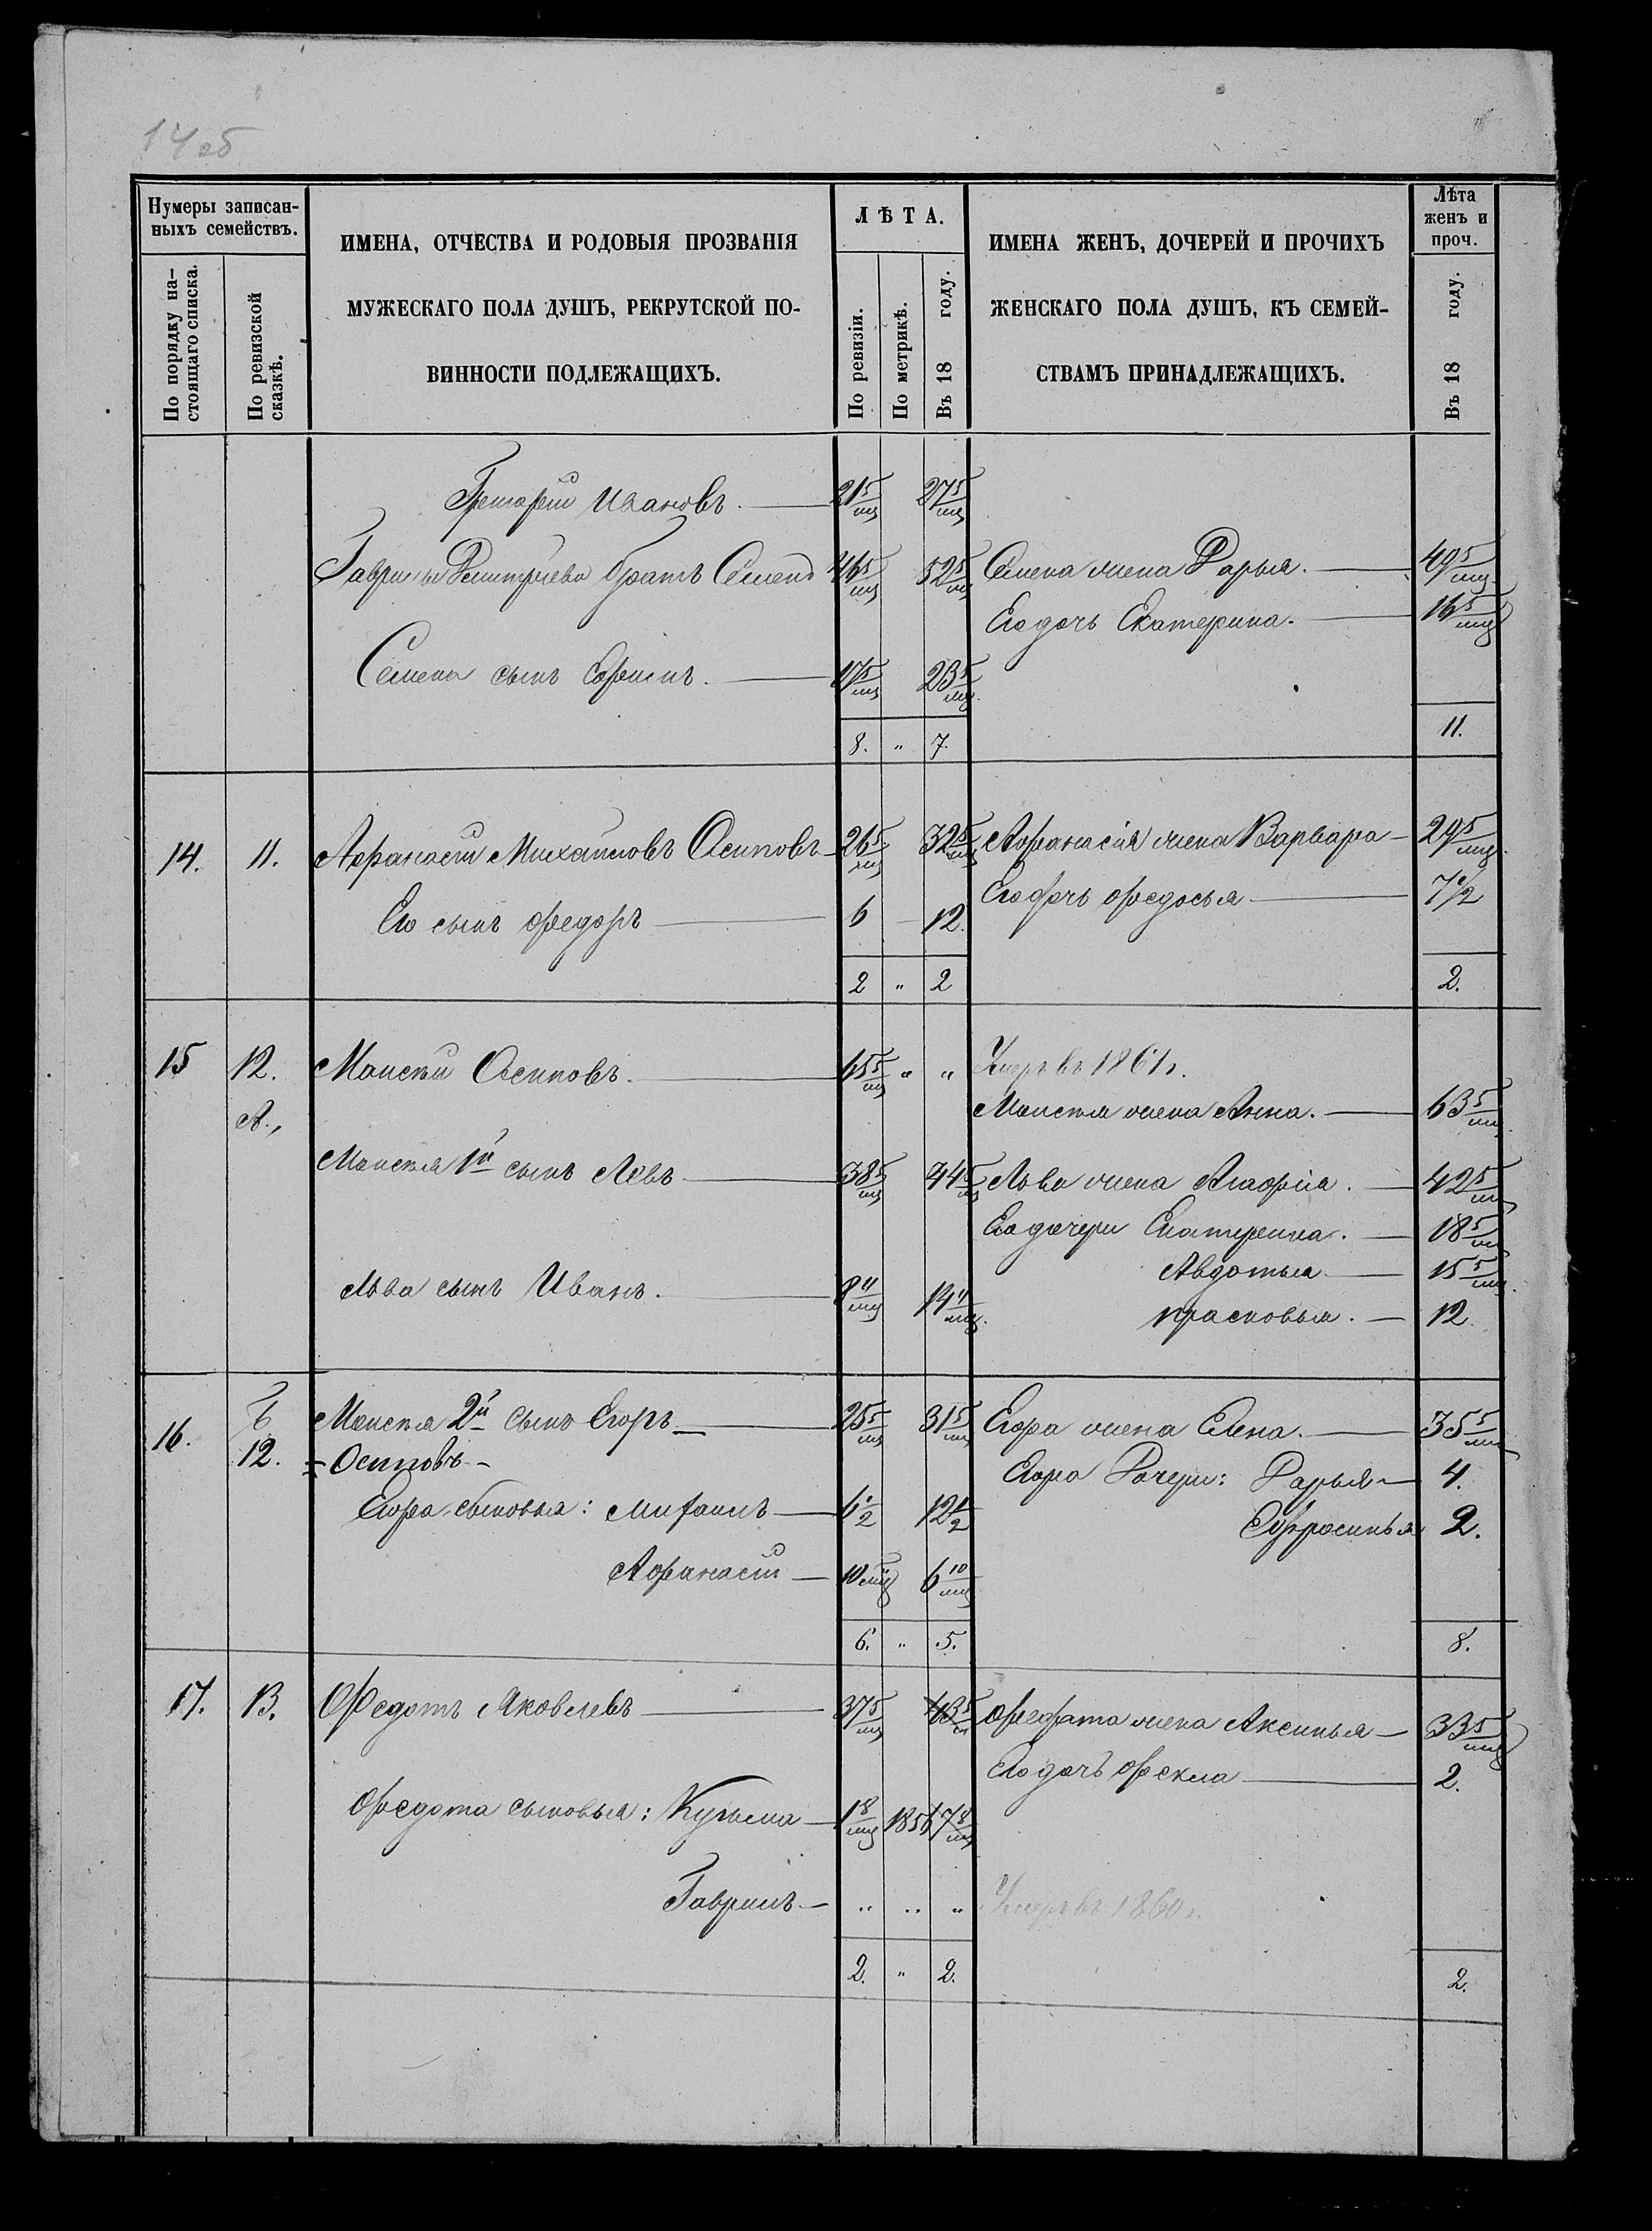 14 об
Нумеры записан-
ныхъ семействъ.
По порядку на-
стоящаго списка.
По ревизской
сказкѣ.
ИМЕНА, ОТЧЕСТВА И РОДОВЫЯ ПРОЗВАНІЯ
МУЖЕСКАГО ПОЛА ДУШЪ, РЕКРУТСКОЙ ПО-
ВИННОСТИ ПОДЛЕЖАЩИХЪ.
ЛѢТА.
По ревизіи.
По метрикѣ.
Въ 18 году.
ИМЕНА ЖЕНЪ, ДОЧЕРЕЙ И ПРОЧИХЪ
ЖЕНСКАГО ПОЛА ДУШЪ, КЪ СЕМЕЙ-
СТВАМЪ ПРИНАДЛЕЖАЩИХЪ.
Лѣта
женъ и
проч.
Въ 18 году.
Григорій Ивановъ. 21 5/мц 27 5/мц
Гаврилы Дмитріева братъ Семенъ 46 5/мц 52 5/мц Семена жена Дарья. 49 5/мц
Его дочь Екатерина. 16 5/мц
Семена сынъ Ефимъ. 17 5/мц 23 5/мц
8. " 7. 11.
14. 11. Афанасій Михайловъ Осиповъ 26 5/мц 32 5/мц Афанасія жена Варвара 29 5/мц
Его дочь Федосья 7 1/2
Его сынъ Федоръ 6 12.
2 " 2 2.
15 12. Моисей Осиповъ. 65 5/мц " " Умеръ въ 1861 г.
А., Моисея жена Анна. 63 5/мц
Моисея 1й сынъ Левъ 38 5/мц 44 5/мц Льва жена Агафія. 42 5/мц
Его дочери Екатерина. 18 5/мц
Авдотья 15 5/мц
Льва сынъ Иванъ. 8 4/мц 14 4/мц
Прасковья. 12.
16. Б 12. Моисея 2й сынъ Егоръ 25 5/мц 31 5/мц Егора жена Елена. 35 5/мц
Осиповъ
Егора Дочери: Дарья 4.
Егора сыновья: Михаилъ 6 1/2 12 1/2
Ефросинья 2.
Афанасій 10 мц 6 10/мц
6. " 5. 8.
17. 13. Федотъ Яковлевъ 37 5/мц 43 5/мц Федота жена Аксинья 33 5/мц
Его дочь Фекла 2.
Федота сыновья: Кузьма 1 8/мц 1856 7 8/мц
Гаврилъ " " " Умеръ въ 1860 г.
2. " 2. 2.